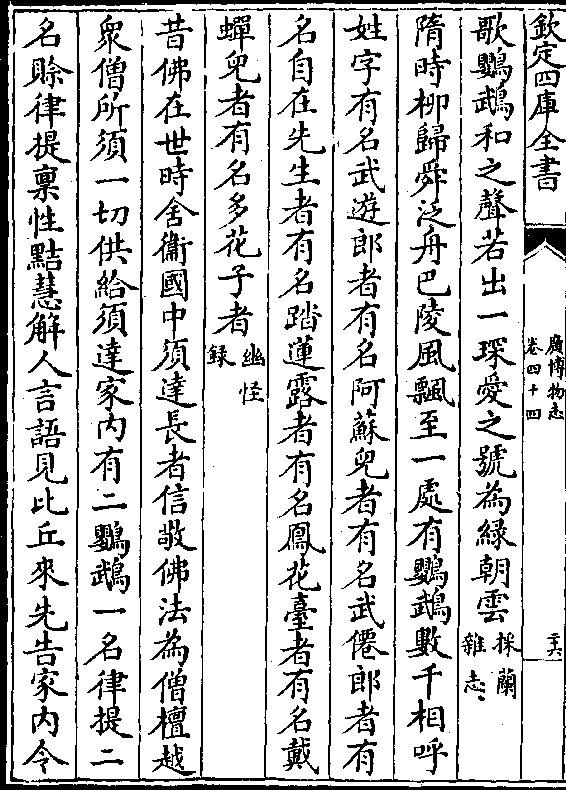 欽定四庫全書
廣博物志
卷四十四
二六
歌鸚鵡和之聲若出一琛愛之號為緑朝雲採蘭雜志
隋時柳歸舜泛舟巴陵風飄至一處有鸚鵡數千相呼
姓字有名武遊郎者有名阿蘇兒者有名武僊郎者有
名自在先生者有名踏蓮露者有名鳳花臺者有名戴
蟬兒者有名多花子者幽怪録
昔佛在世時舍衞國中須達長者信敬佛法為僧檀越
衆僧所須一切供給須達家内有二鸚鵡一名律提二
名賖律提稟性黠慧解人言語見比丘來先告家内令